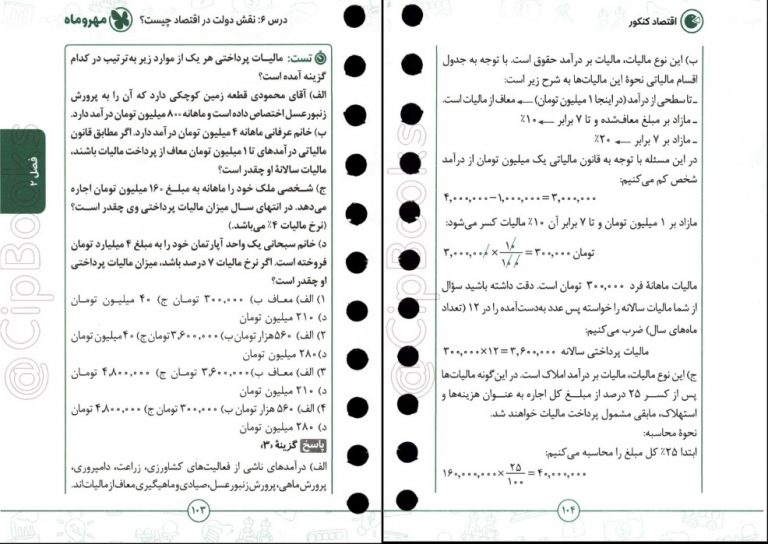 درس ۶: نقش دولت در اقتصاد چیست؟
مهروماه
فصل ۲
تست: مالیات پرداختی هر یک از موارد زیر به‌ترتیب در کدام
گزینه آمده است؟
الف) آقای محمودی قطعه زمین کوچکی دارد که آن را به پرورش
زنبورعسل اختصاص داده است و ماهانه ۸۰۰ میلیون تومان درآمد دارد.
ب) خانم عرفانی ماهانه ۴ میلیون تومان درآمد دارد. اگر مطابق قانون
مالیاتی درآمدهای تا ۱ میلیون تومان معاف از پرداخت مالیات باشند،
مالیات سالانهٔ او چقدر است؟
ج) شخصی ملک خود را ماهانه به مبلغ ۱۶۰ میلیون تومان اجاره
می‌دهد. در انتهای سال میزان مالیات پرداختی وی چقدر است؟
(نرخ مالیات ۴٪ می‌باشد.)
د) خانم سبحانی یک واحد آپارتمان خود را به مبلغ ۴ میلیارد تومان
فروخته است. اگر نرخ مالیات ۷ درصد باشد، میزان مالیات پرداختی
او چقدر است؟
۱) الف) معاف ب) ۳۰۰,۰۰۰ تومان ج) ۴۰ میلیون تومان
د) ۲۱۰ میلیون تومان
۲) الف) ۵۶۰ هزار تومان ب) ۳,۶۰۰,۰۰۰ تومان ج) ۴۰ میلیون تومان
د) ۲۸۰ میلیون تومان
۳) الف) معاف ب) ۳,۶۰۰,۰۰۰ تومان ج) ۴,۸۰۰,۰۰۰ تومان
د) ۲۱۰ میلیون تومان
۴) الف) ۵۶۰ هزار تومان ب) ۳۰۰,۰۰۰ تومان ج) ۴,۸۰۰,۰۰۰ تومان
د) ۲۸۰ میلیون تومان
پاسخ گزینهٔ «۳»
الف) درآمدهای ناشی از فعالیت‌های کشاورزی، زراعت، دامپروری،
پرورش ماهی، پرورش زنبورعسل، صیادی و ماهیگیری معاف از مالیات‌اند.
۱۰۳
@CipBooks
اقتصاد کنکور
ب) این نوع مالیات، مالیات بر درآمد حقوق است. با توجه به جدول
اقسام مالیاتی نحوهٔ این مالیات‌ها به شرح زیر است:
ـ تا سطحی از درآمد (در اینجا ۱ میلیون تومان) ← معاف از مالیات است.
ـ مازاد بر مبلغ معاف‌شده و تا ۷ برابر ← ۱۰٪
ـ مازاد بر ۷ برابر ← ۲۰٪
در این مسئله با توجه به قانون مالیاتی یک میلیون تومان از درآمد
شخص کم می‌کنیم:
۴,۰۰۰,۰۰۰-۱,۰۰۰,۰۰۰=۳,۰۰۰,۰۰۰
مازاد بر ۱ میلیون تومان و تا ۷ برابر آن ۱۰٪ مالیات کسر می‌شود:
۳,۰۰۰,۰۰۰×۱۰/۱۰۰=۳۰۰,۰۰۰ تومان
مالیات ماهانهٔ فرد ۳۰۰,۰۰۰ تومان است. دقت داشته باشید سؤال
از شما مالیات سالانه را خواسته پس عدد به‌دست‌آمده را در ۱۲ (تعداد
ماه‌های سال) ضرب می‌کنیم:
۳۰۰,۰۰۰×۱۲=۳,۶۰۰,۰۰۰ مالیات پرداختی سالانه
ج) این نوع مالیات، مالیات بر درآمد املاک است. در این‌گونه مالیات‌ها
پس از کسر ۲۵ درصد از مبلغ کل اجاره به عنوان هزینه‌ها و
استهلاک، مابقی مشمول پرداخت مالیات خواهند شد.
نحوهٔ محاسبه:
ابتدا ۲۵٪ کل مبلغ را محاسبه می‌کنیم:
۱۶۰,۰۰۰,۰۰۰×۲۵/۱۰۰=۴۰,۰۰۰,۰۰۰
۱۰۴
@CipBooks